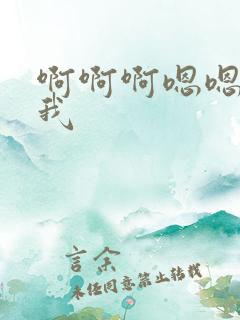 啊啊啊嗯嗯
我
言余
未经同意禁止转载